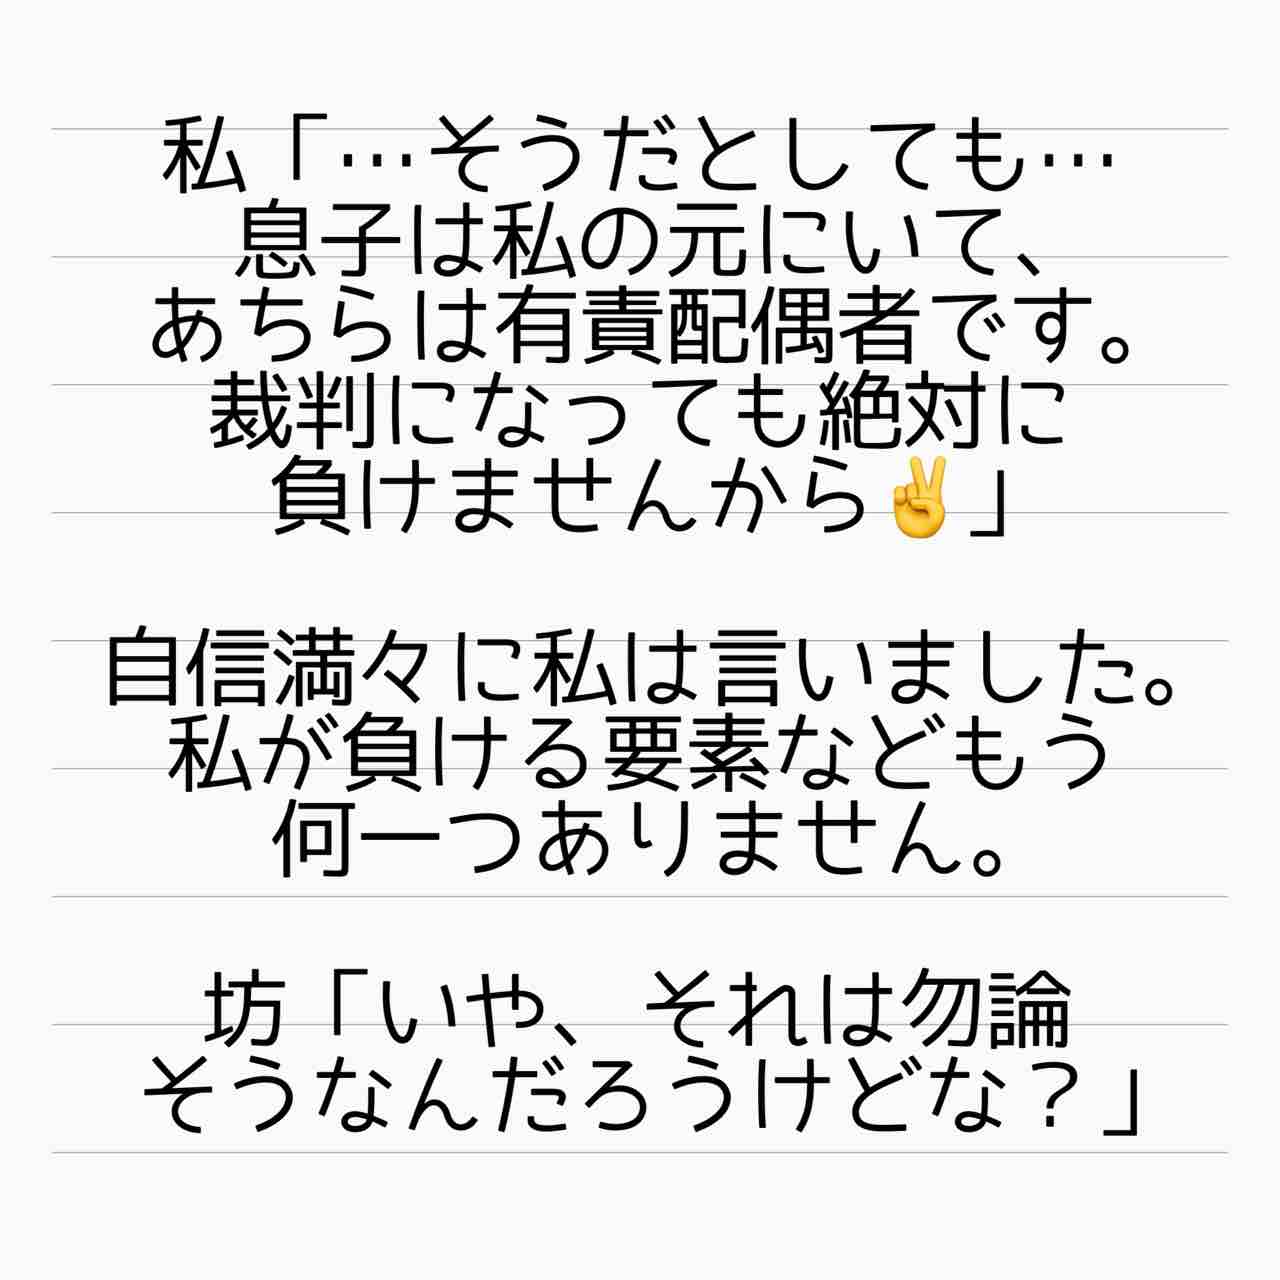 私「…そうだとしても…
息子は私の元にいて、
あちらは有責配偶者です。
裁判になっても絶対に
負けませんから✌️」
自信満々に私は言いました。
私が負ける要素などもう
何一つありません。
坊「いや、それは勿論
そうなんだろうけどな？」